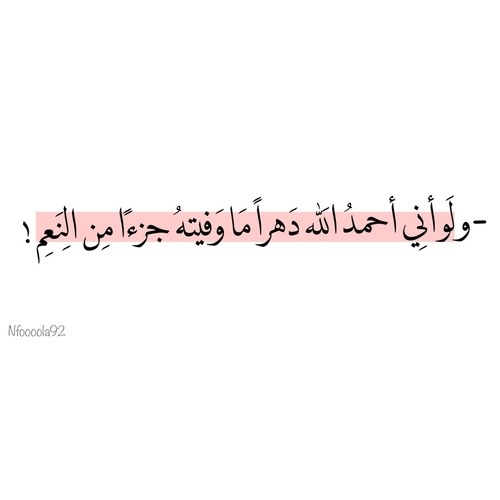 -ولَو أنِي أحمدُ الله دَهراً مَا وَفيتهُ جزءًا مِن النِعَمِ !
Nfoooola92